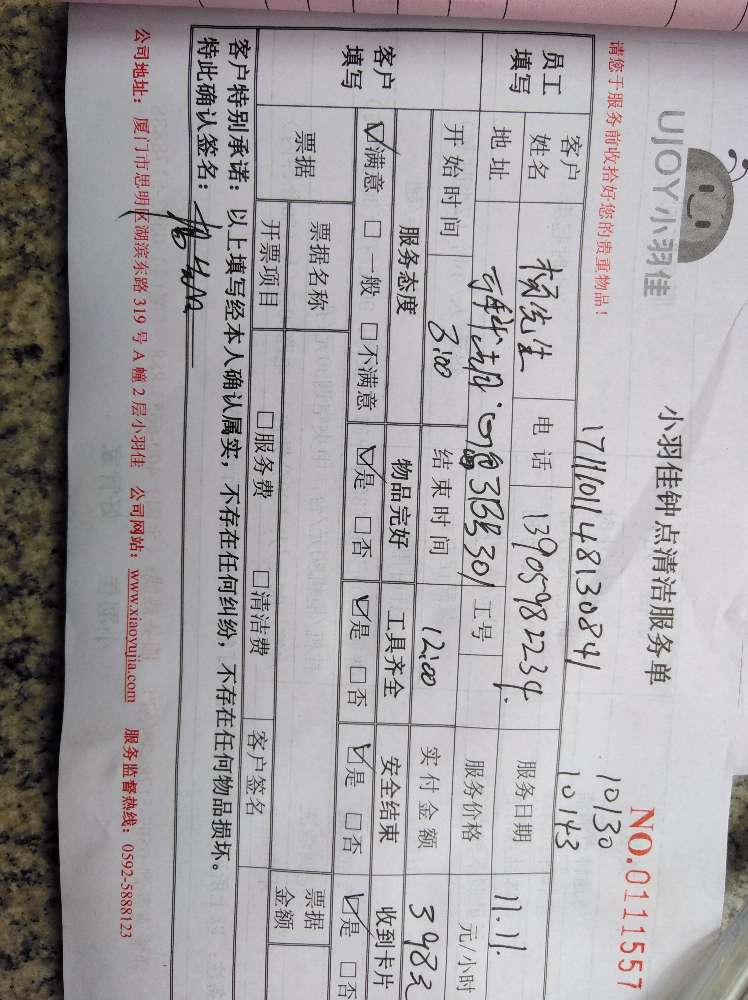 UJOY小羽佳
小羽佳钟点清洁服务单
NO.0111557
请您于服务前收拾好您的贵重物品！
10130
10143
员工填写
客户姓名
先生
电话
13905982234
服务日期
11.11.
地址
301
工号
服务价格
元/小时
开始时间
3:00
结束时间
12:00
实付金额
398元
客户填写
服务态度
物品完好
工具齐全
安全结束
收到卡片
☑满意 □一般 □不满意
☑是 □否
☑是 □否
☑是 □否
☑是 □否
票据
票据名称
客户签名
票据金额
开票项目
□服务费 □清洁费
客户特别承诺：以上填写经本人确认属实，不存在任何纠纷，不存在任何物品损坏。
特此确认签名：
公司地址：厦门市思明区湖滨东路 319 号 A 幢 2 层小羽佳 公司网站：www.xiaoyujia.com 服务监督热线：0592-5888123